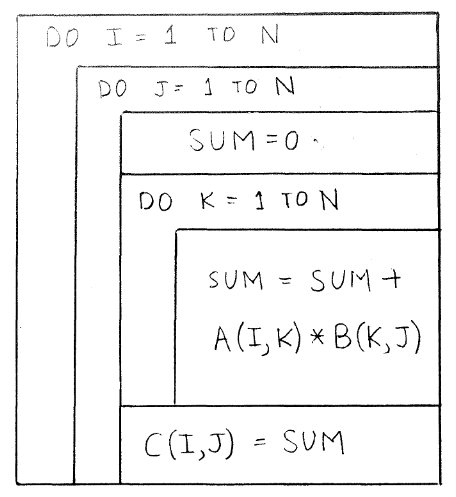 DO I = 1 TO N
DO J = 1 TO N
SUM = 0
DO K = 1 TO N
SUM = SUM +
A(I,K) * B(K,J)
C(I,J) = SUM